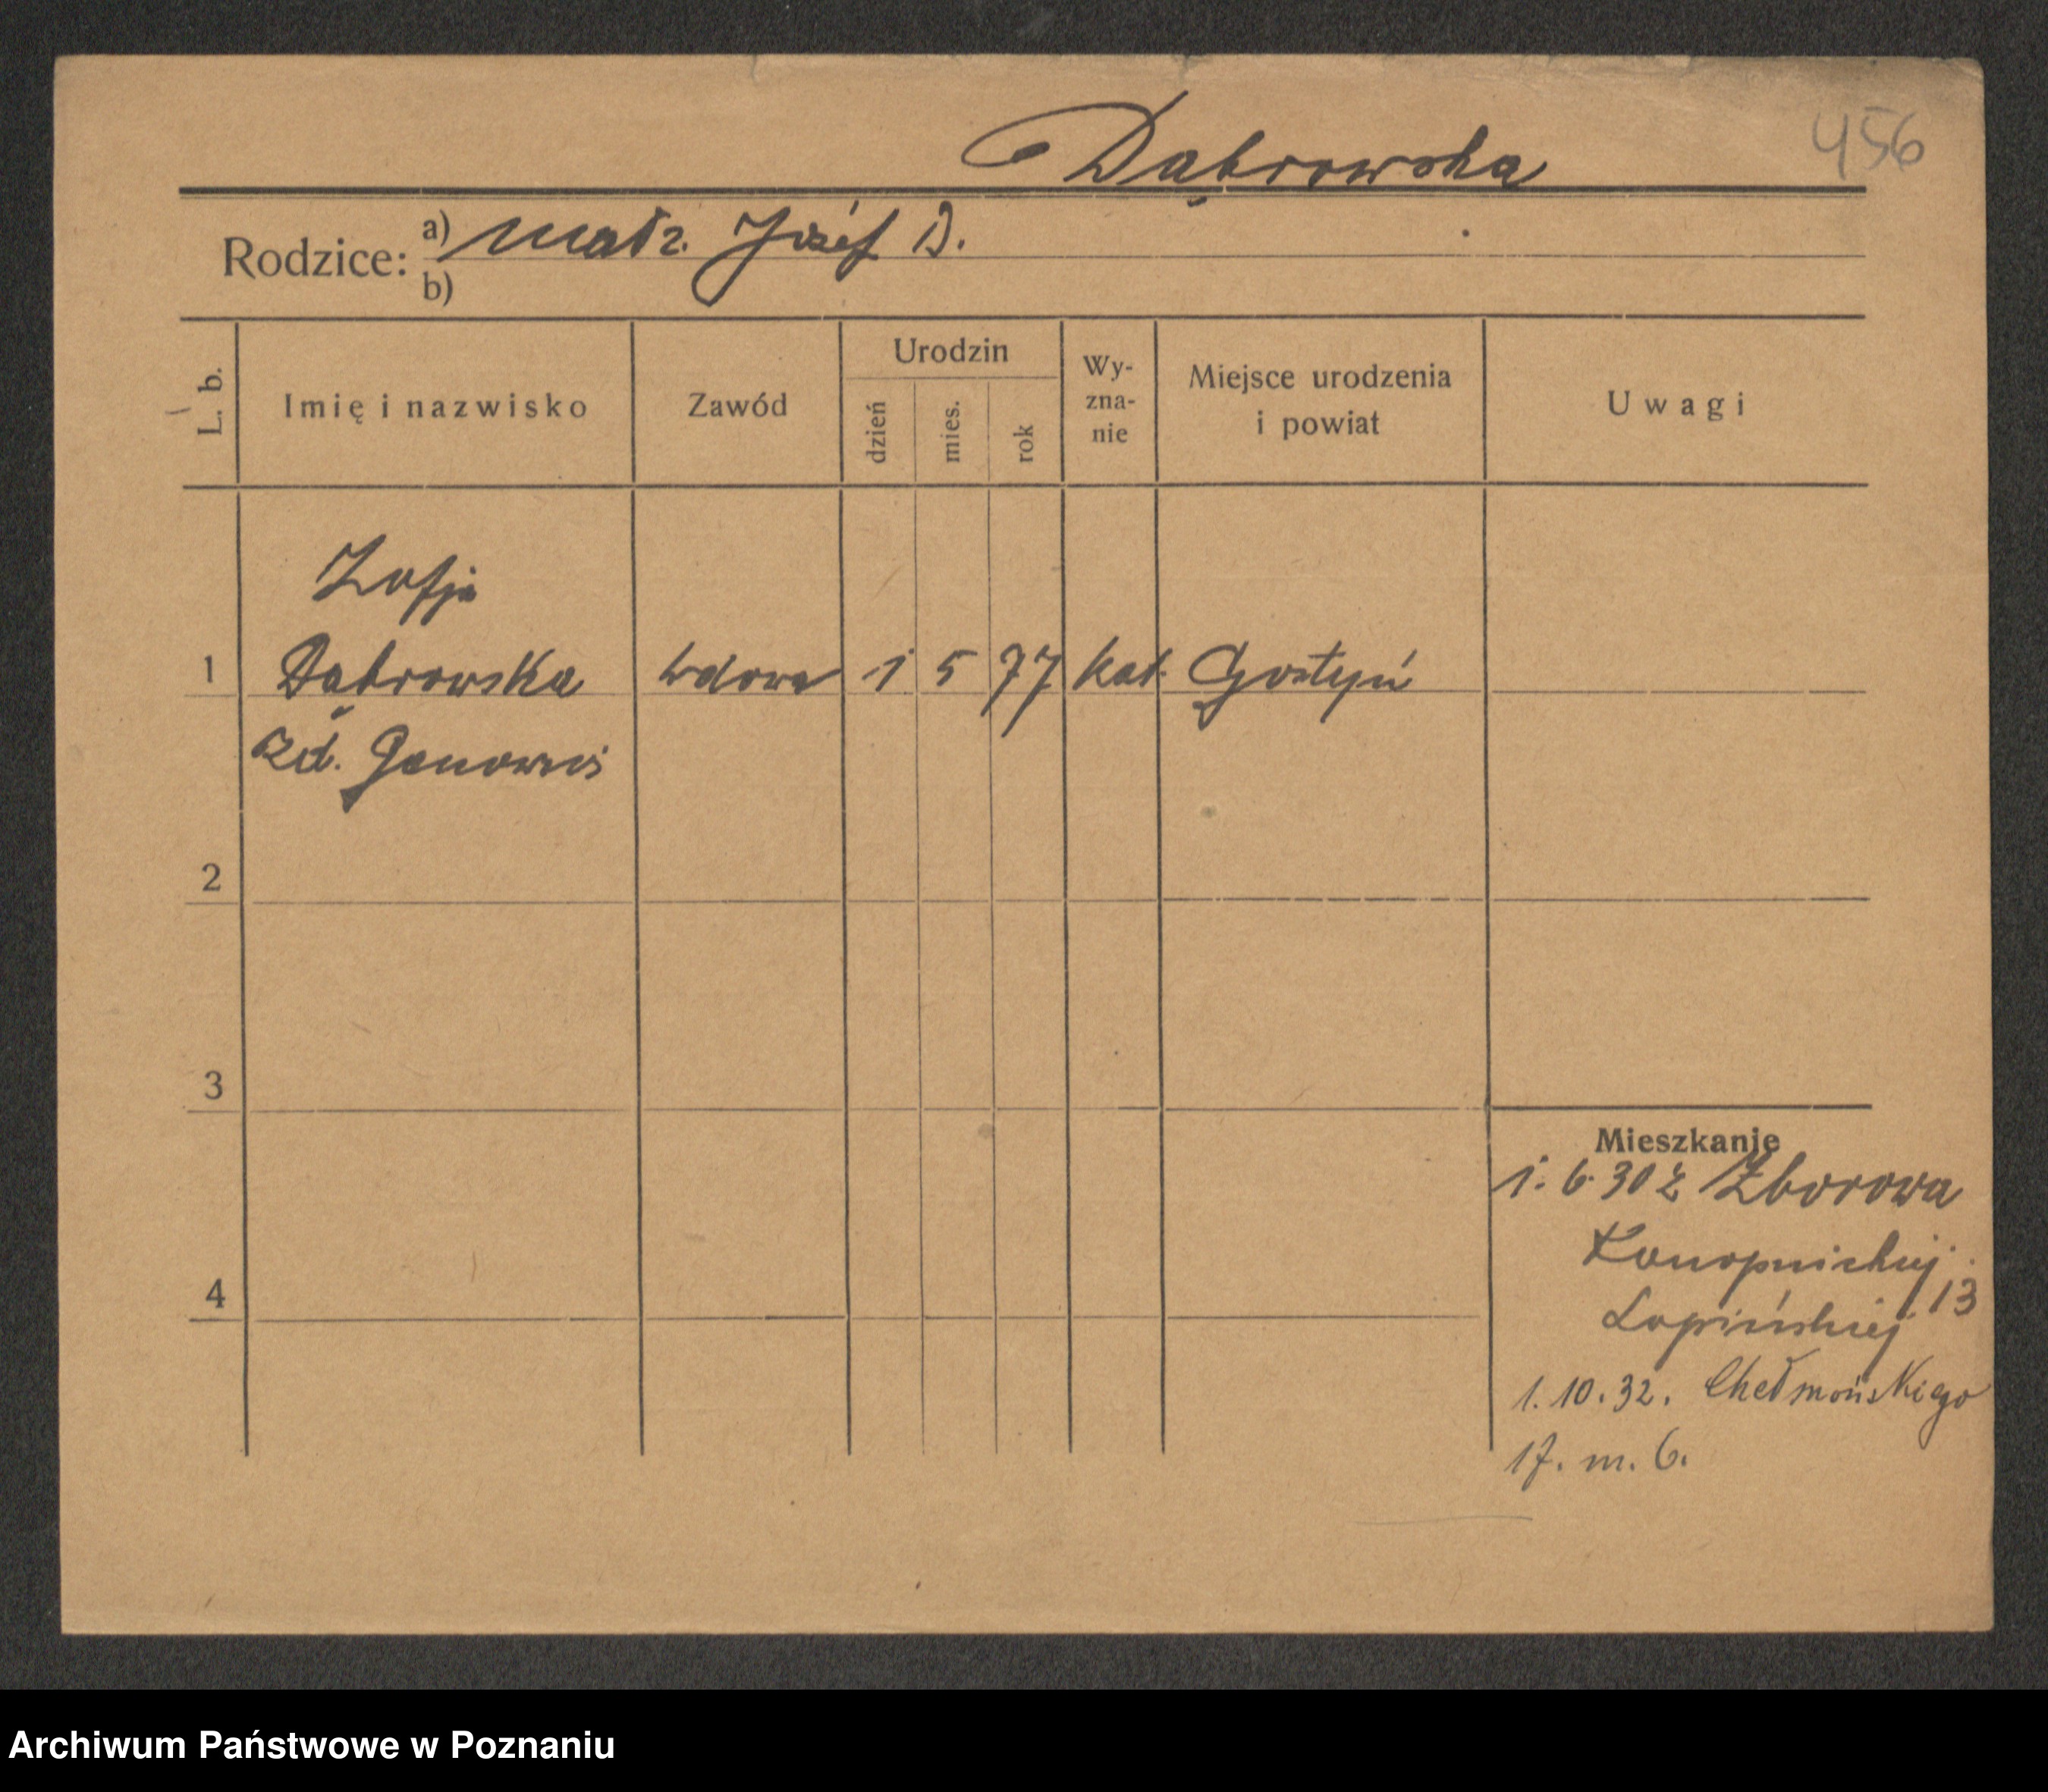 456
Dąbrowska
Rodzice: a) małż. Józef D.
b)
L. b. Imię i nazwisko Zawód Urodzin dzień mies. rok Wy-zna-nie Miejsce urodzenia i powiat Uwagi
Zofja
1 Dąbrowska wdowa 1 5 77 kat. Gostyń
zd.
2
3
4
Mieszkanie
1. 6. 30 z Zborowa
Konopnickiej 13
Łapińskiej
1. 10. 32. Chełmońskiego
17. m. 6.
Archiwum Państwowe w Poznaniu